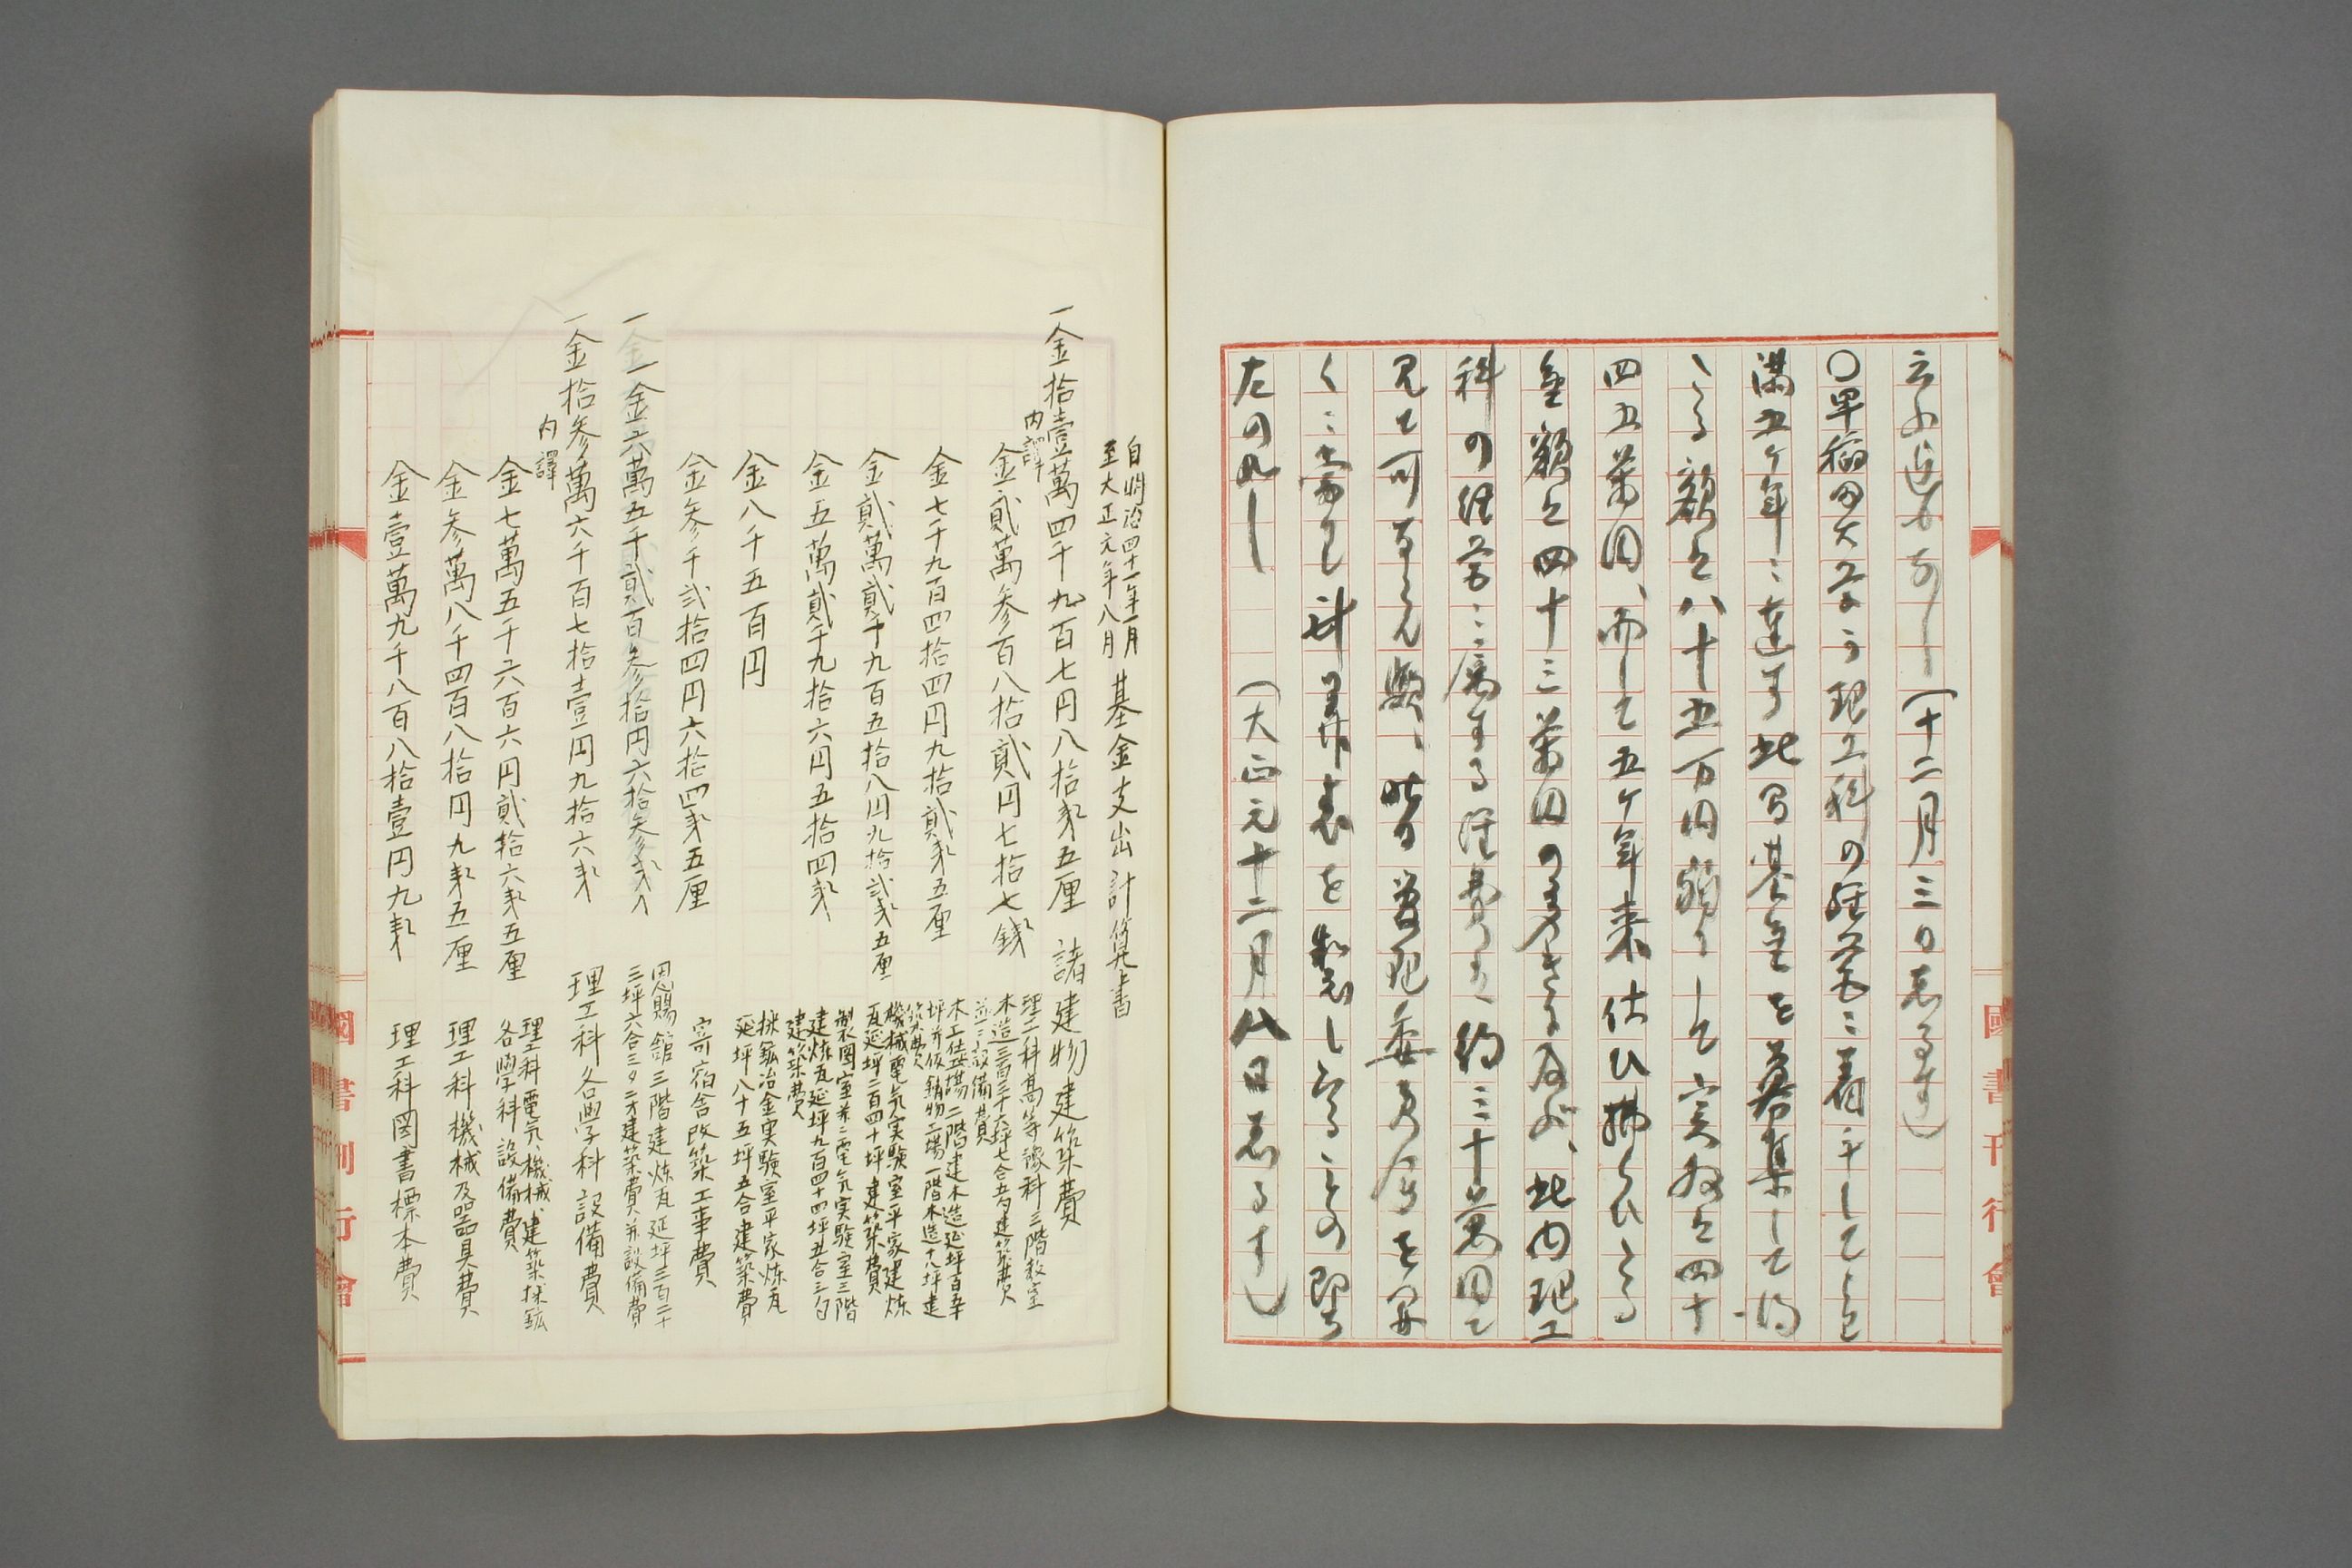 (十二月三日志るす)
〇早稲田大学ゟ理工科の経営ニ着手してより
満五ケ年ニ達す此間基金を募集して得
たる額ハ八十五万円
四五萬円、而して五ケ年来仕ひ払ひたる
金額ハ四十三萬円の多きニ及ぶ、此内理工
科の経営ニ属する経費ハ約三十萬円と
見て可ならん歟、昨日管理委員会を開
くニ当り計算表を製し
左の如し (大正元十二月八日志るす)
國書刊行會
自明治四十一年一月
至大正元年八月
基金支出計算書
一金拾壹萬四千九百七円八拾銭五厘 諸建物建築費
内譯
金貳萬参百八拾貳円七拾七銭 理工科高等豫科三階教室
木造三百三十六坪七合五勺建築費
並ニ設備費
金七千九百四拾四円九拾貳銭五厘 木工仕上場二階建木造延坪百五十
坪并仮鋳物工場一階木造十八坪建
築費
金貳萬貳千九百五拾八円九拾貳銭五厘 機械電気実験室平家建煉
瓦延坪二百四十坪建築費
金五萬貳千九拾六円五拾四銭 製図室并ニ電気実験室三階
建煉瓦延坪九百四十四坪五合三勺
建築費
金八千五百円 採鉱冶金実験室平家煉瓦
延坪八十五坪五合建築費
金参千弐拾四円六拾四銭五厘 寄宿舎改築工事費
一金六萬五千貳百参拾円六拾参銭 恩賜館三階建煉瓦延坪三百二十
三坪六合三夕二才建築費并設備費
一金拾参萬六千百七拾壹円九拾六銭 理工科各學科設備費
内譯
金七萬五千六百六円貳拾六銭五厘 理工科電気、機械、建築、採鉱
各學科設備費
金参萬八千四百八拾円九銭五厘 理工科機械及器具費
金壹萬九千八百八拾壹円九銭 理工科図書標本費
國書刊行會